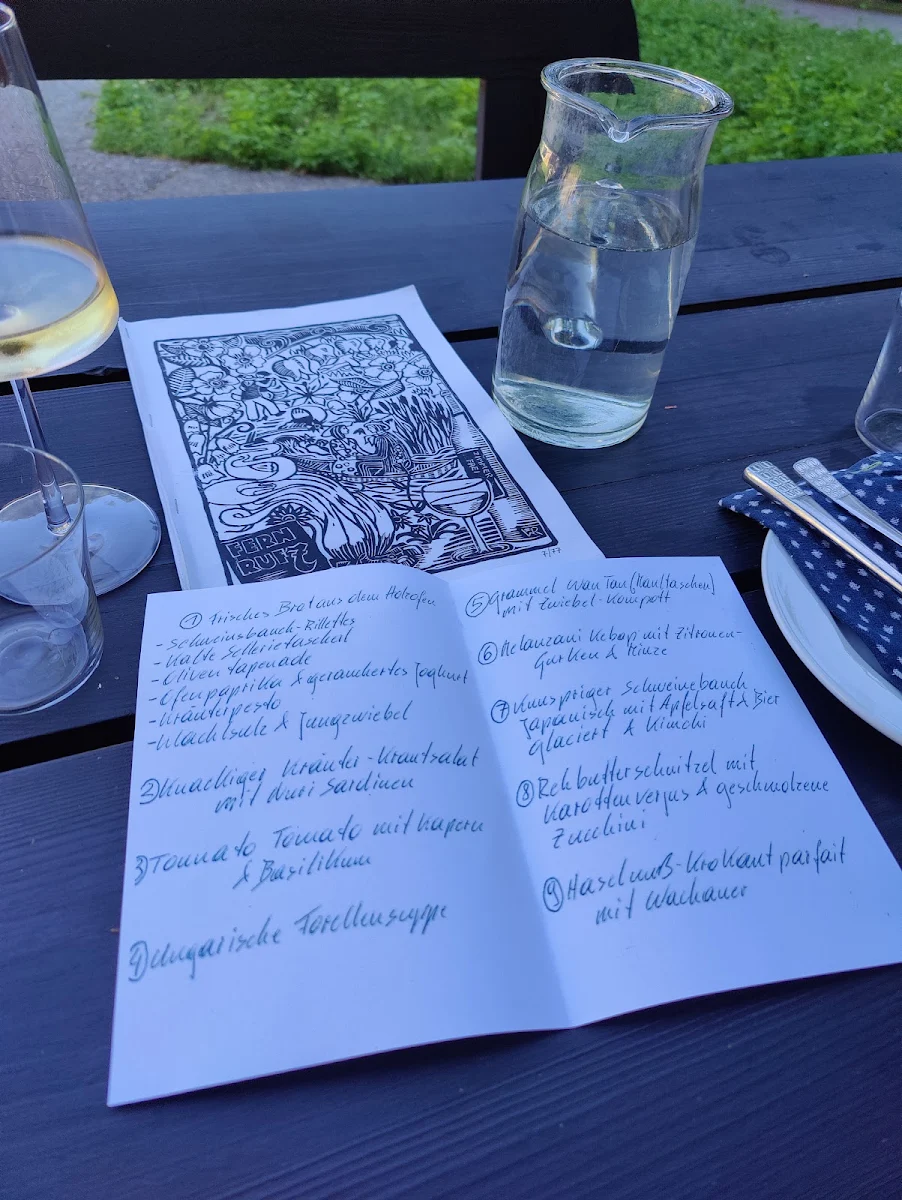 FERN
RUF 7
7/77
① Frisches Brot aus dem Holzofen
- Schweinsbauch-Rillettes
- Kalte Sellerietascherl
- Oliven tapenade
- Ofenpaprika & geräuchertes Joghurt
- Kräuterpesto
- Wachtsulz & Jungzwiebel
② Knackiger Kräuter-Krautsalat
mit Sardinen
③ Tonnato Tomato mit Kapern
& Basilikum
④ Ungarische Forellensuppe
⑤ Grammel Wan Tan [Maultaschen]
mit Zwiebel-Kompott
⑥ Melanzani Kebap mit Zitronen-
Gurken & Minze
⑦ Knuspriger Schweinebauch
Japanisch mit Apfelsaft & Bier
glaciert & Kimchi
⑧ Rehbutterschnitzel mit
Karottenverjus & geschmolzene
Zucchini
⑨ Haselnuß-Krokantparfait
mit Wachauer